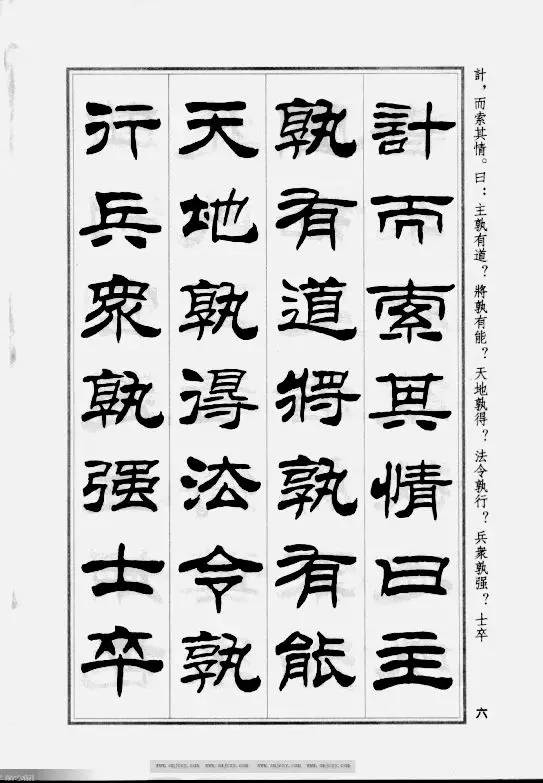 計，而索其情。曰：主孰有道？將孰有能？天地孰得？法令孰行？兵衆孰强？士卒
計而索其情曰主
孰有道將孰有能
天地孰得法令孰
行兵衆孰强士卒
六